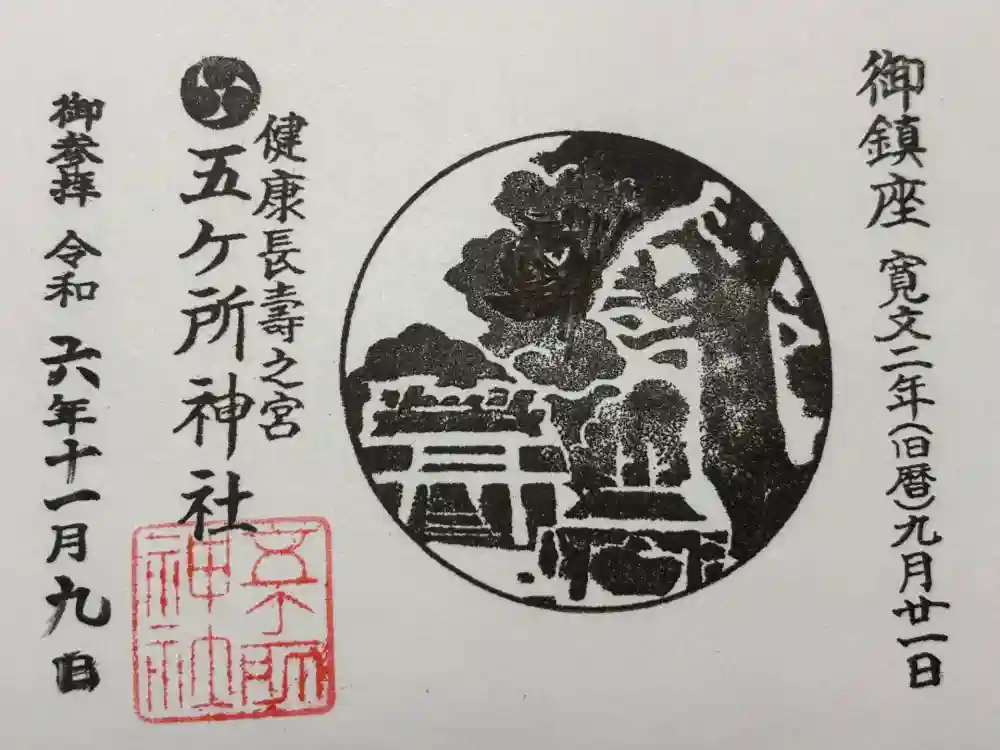 御鎮座 寛文二年(旧暦)九月廿一日
健康長壽之宮
五ケ所神社
五ケ所神社
御参拝 令和 六年十一月九日